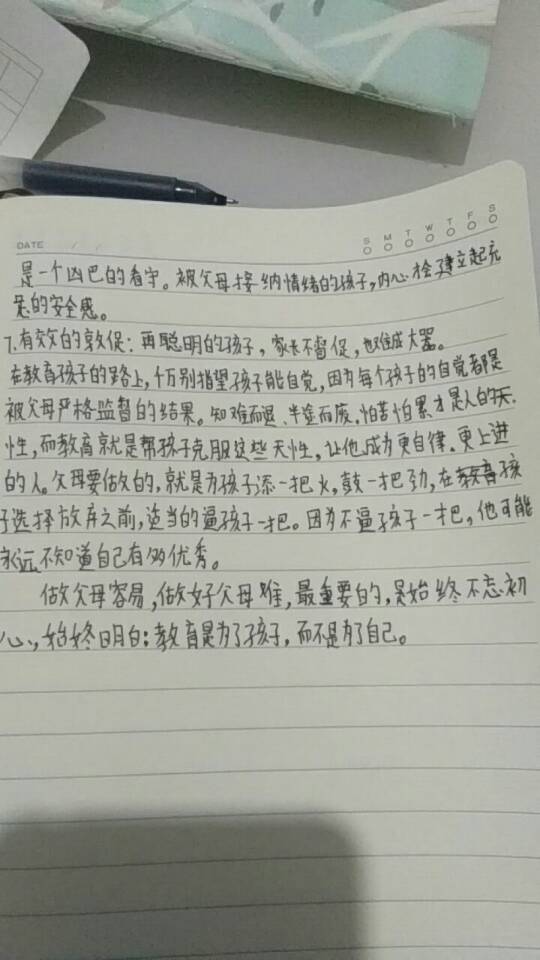 DATE / / S M T W T F S
是一个凶巴的看守。被父母接纳情绪的孩子,内心才会建立起充
足的安全感。
7.有效的敦促:再聪明的孩子,家长不督促,也难成大器。
在教育孩子的路上,千万别指望孩子能自觉,因为每个孩子的自觉都是
被父母严格监督的结果。知难而退、半途而废、怕苦怕累才是人的天
性,而教育就是帮孩子克服这些天性,让他成为更自律、更上进
的人。父母要做的,就是为孩子添一把火,鼓一把劲,在教育孩
子选择放弃之前,适当的逼孩子一把。因为不逼孩子一把,他可能
永远不知道自己有多优秀。
做父母容易,做好父母难,最重要的,是始终不忘初
心,始终明白:教育是为了孩子,而不是为了自己。